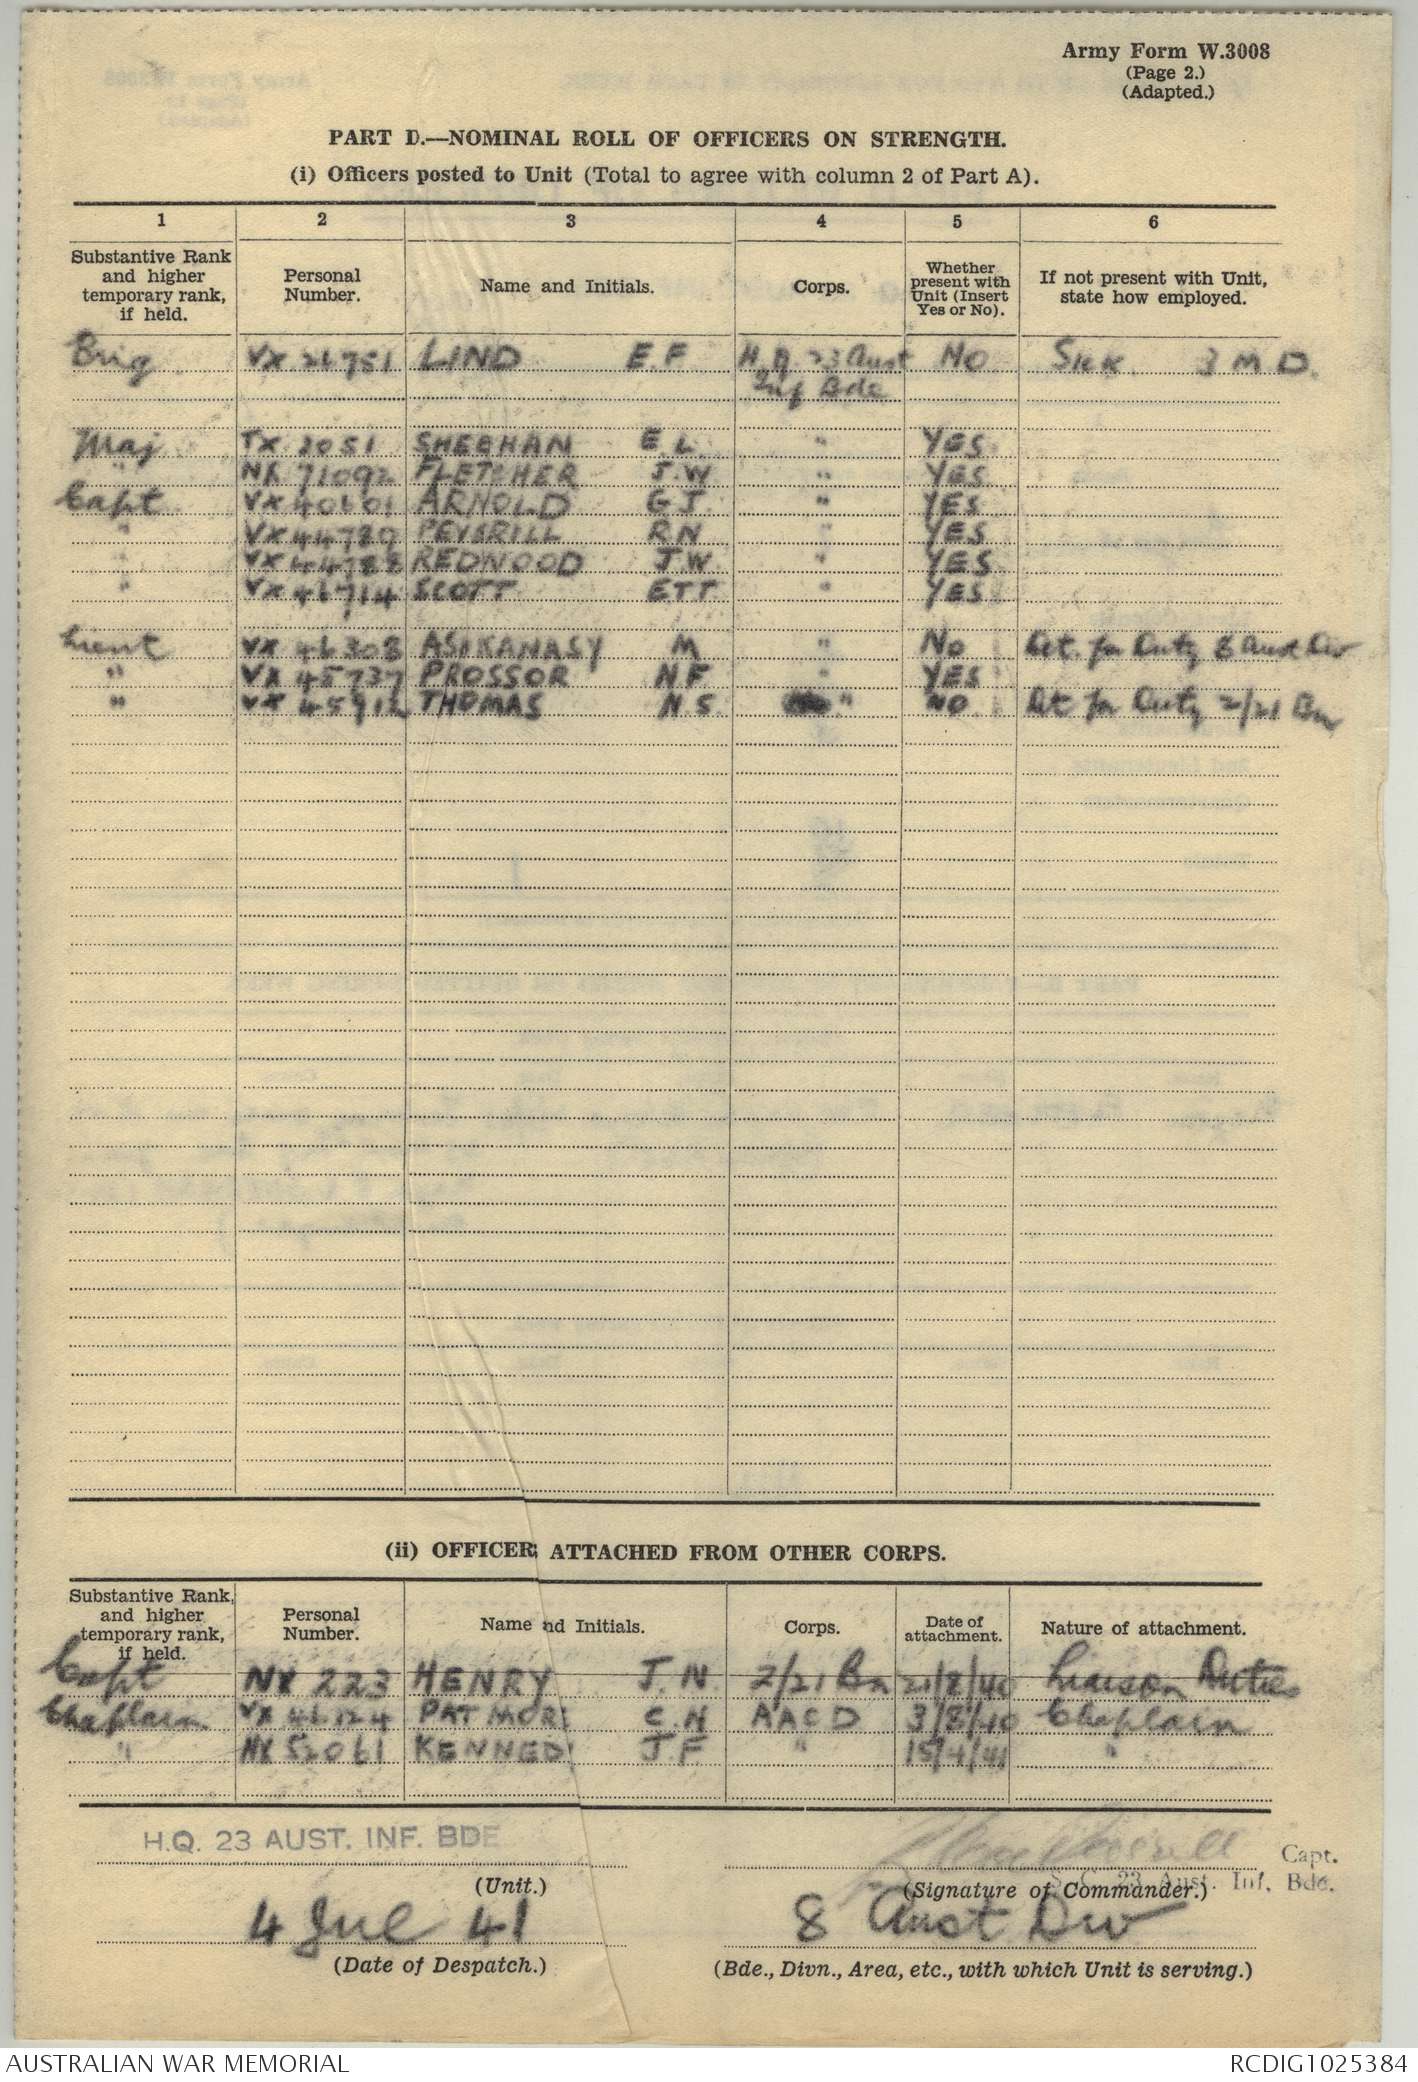 Army Form W.3008
(Page 2.)
(Adapted.)
PART D.—NOMINAL ROLL OF OFFICERS ON STRENGTH.
(i) Officers posted to Unit (Total to agree with column 2 of Part A).
1 2 3 4 5 6
Substantive Rank and higher temporary rank, if held. Personal Number. Name and Initials. Corps. Whether present with Unit (Insert Yes or No). If not present with Unit, state how employed.
Brig VX 26751 LIND E.F H.Q. 23 Aust No Sick 3 M D.
Inf Bde
Maj TX 2051 SHEEHAN E.L. " YES
" NX 71092 FLETCHER J.W " YES
Capt VX 40601 ARNOLD G J. " YES
" VX 44789 PEVERILL R N " YES
" VX 44788 REDWOOD J.W " YES
" VX 46714 SCOTT E T T " YES
Lieut VX 46308 ASHKANASY M " No Det. for Duty 8 Aust Div
" VX 45737 PROSSOR N F " YES
" VX 45912 THOMAS N.S. " NO Det for Duty 2/21 Bn
(ii) OFFICER ATTACHED FROM OTHER CORPS.
Substantive Rank, and higher temporary rank, if held. Personal Number. Name and Initials. Corps. Date of attachment. Nature of attachment.
Capt NX 223 HENRY J.N. 2/21 Bn 21/8/40 Liaison Duties
Chaplain VX 46124 PATMOR C.H AACD 3/8/40 Chaplain
" NX 52061 KENNED J F " 15/4/41 "
H.Q. 23 AUST. INF. BDE
Capt.
S.C. 23 Aust. Inf. Bde.
(Unit.) (Signature of Commander.)
4 Jul 41 8 Aust Div
(Date of Despatch.) (Bde., Divn., Area, etc., with which Unit is serving.)
AUSTRALIAN WAR MEMORIAL RCDIG1025384